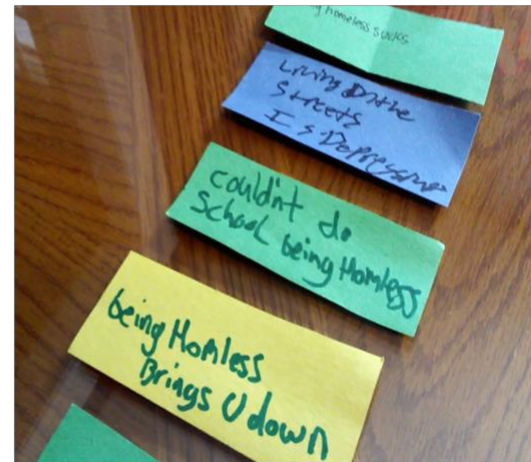 g homeless sucks
Living On the
Streets
Is Depressing
couldn't do
School being Homless
being Homless
Brings U down